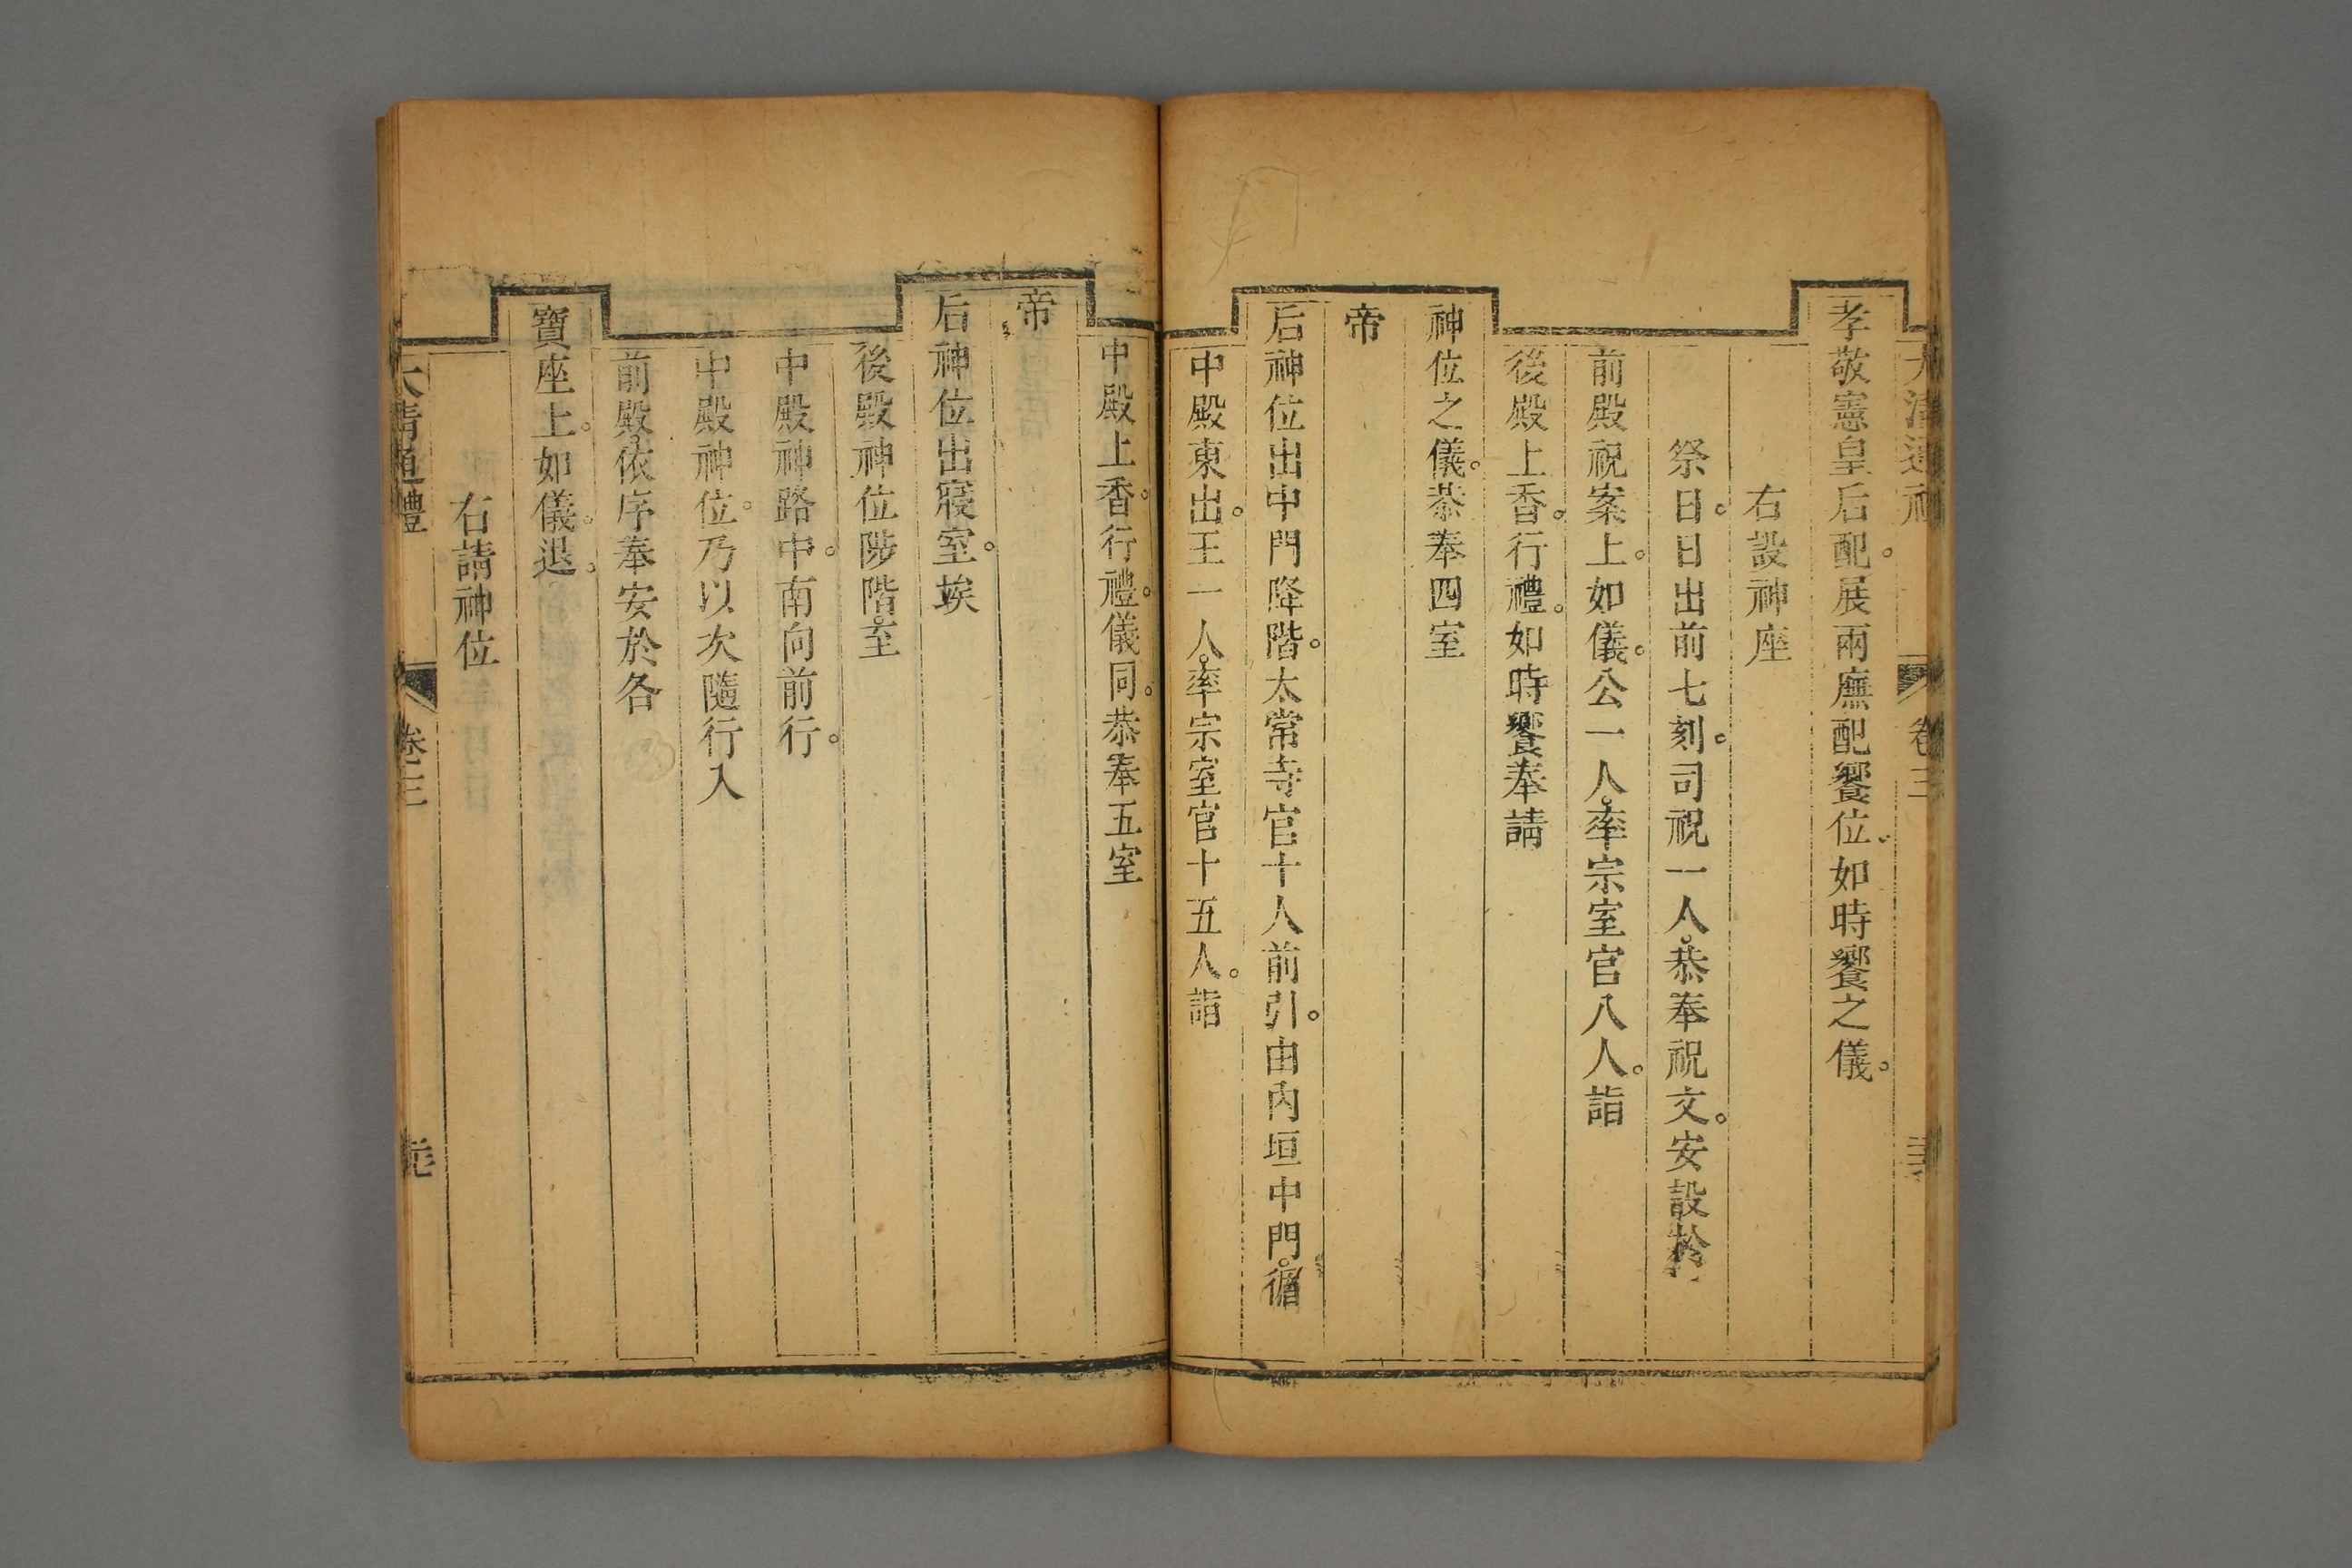 大清通禮 卷三
孝敬憲皇后配。展兩廡配饗位。如時饗之儀。
右設神座
祭日。日出前七刻。司祝一人。恭奉祝文。安設於
前殿祝案上。如儀。公一人。率宗室官八人。詣
後殿上香。行禮。如時饗奉請
神位之儀。恭奉四室
帝
后神位出中門降階。太常寺官十人前引。由內垣中門。循
中殿東出。王一人。率宗室官十五人。詣
中殿上香。行禮。儀同。恭奉五室
帝
后神位出寢室。竢
後殿神位陟階。至
中殿神路中。南向前行。
中殿神位。乃以次隨行入
前殿。依序奉安於各
寶座上。如儀。退。
右請神位
大清通禮 卷三